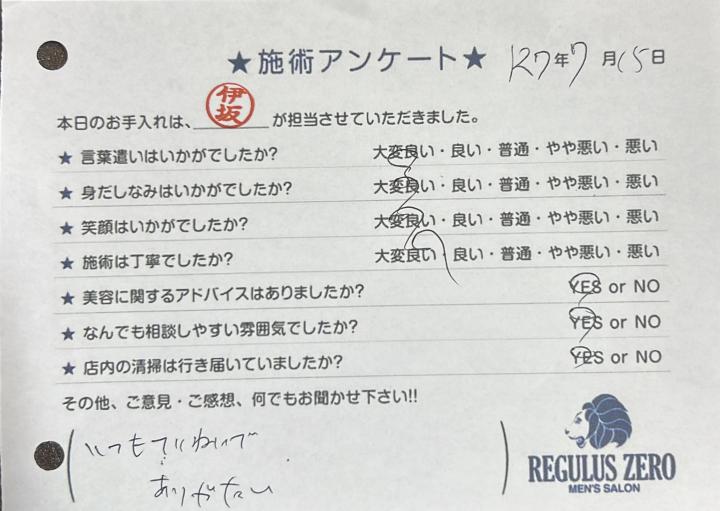 ★施術アンケート★ R7年7月15日
本日のお手入れは、伊坂が担当させていただきました。
★ 言葉遣いはいかがでしたか? 大変良い・良い・普通・やや悪い・悪い
★ 身だしなみはいかがでしたか? 大変良い・良い・普通・やや悪い・悪い
★ 笑顔はいかがでしたか? 大変良い・良い・普通・やや悪い・悪い
★ 施術は丁寧でしたか? 大変良い・良い・普通・やや悪い・悪い
★ 美容に関するアドバイスはありましたか? YES or NO
★ なんでも相談しやすい雰囲気でしたか? YES or NO
★ 店内の清掃は行き届いていましたか? YES or NO
その他、ご意見・ご感想、何でもお聞かせ下さい!!
いつもていねいで
ありがたい
REGULUS ZERO
MEN'S SALON